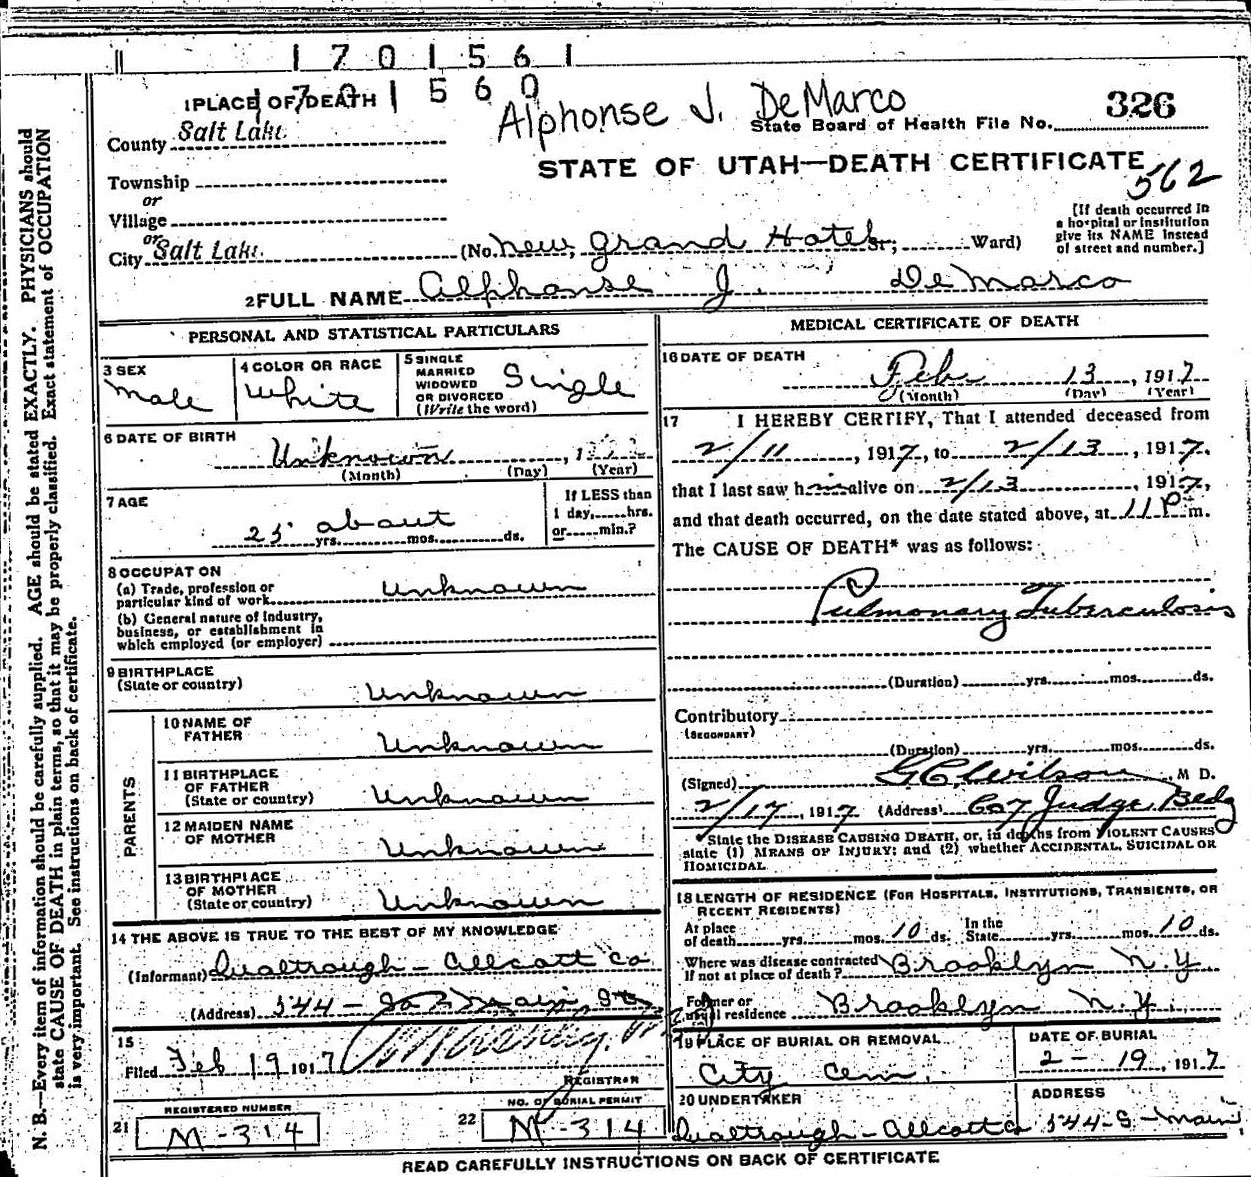 1701561
1701560
1 PLACE OF DEATH
Alphonse J. DeMarco
State Board of Health File No. 326
County Salt Lake
STATE OF UTAH—DEATH CERTIFICATE
562
Township
or
Village
or
City Salt Lake (No. New Grand Hotel St; Ward)
[If death occurred in
a hospital or institution
give its NAME instead
of street and number.]
2 FULL NAME Alphonse J. DeMarco
PERSONAL AND STATISTICAL PARTICULARS
3 SEX
Male
4 COLOR OR RACE
White
5 SINGLE
MARRIED
WIDOWED
OR DIVORCED
(Write the word)
Single
6 DATE OF BIRTH
Unknown , 1
(Month) (Day) (Year)
7 AGE
25 about
yrs. mos. ds.
If LESS than
1 day, hrs.
or min.?
8 OCCUPATON
(a) Trade, profession or
particular kind of work Unknown
(b) General nature of Industry,
business, or establishment in
which employed (or employer)
9 BIRTHPLACE
(State or country) Unknown
PARENTS
10 NAME OF
FATHER Unknown
11 BIRTHPLACE
OF FATHER
(State or country) Unknown
12 MAIDEN NAME
OF MOTHER Unknown
13 BIRTHPLACE
OF MOTHER
(State or country) Unknown
14 THE ABOVE IS TRUE TO THE BEST OF MY KNOWLEDGE
(Informant) Qualtrough-Allcott Co
(Address) 544 - So Main St
15
Filed Feb 19 1917
REGISTRAR
REGISTERED NUMBER
21 M-314
NO. OF BURIAL PERMIT
22 M-314
MEDICAL CERTIFICATE OF DEATH
16 DATE OF DEATH
Feb 13, 1917
(Month) (Day) (Year)
17 I HEREBY CERTIFY, That I attended deceased from
2/11, 1917, to 2/13, 1917.
that I last saw him alive on 2/13, 1917,
and that death occurred, on the date stated above, at 11 P m.
The CAUSE OF DEATH* was as follows:
Pulmonary Tuberculosis
(Duration) yrs. mos. ds.
Contributory
(SECONDARY)
(Duration) yrs. mos. ds.
(Signed) G.C. Wilson, M D.
2/17, 1917 (Address) 607 Judge Bldg
*State the DISEASE CAUSING DEATH, or, in deaths from VIOLENT CAUSES
state (1) MEANS OF INJURY; and (2) whether ACCIDENTAL, SUICIDAL OR
HOMICIDAL
18 LENGTH OF RESIDENCE (FOR HOSPITALS, INSTITUTIONS, TRANSIENTS, OR
RECENT RESIDENTS)
At place
of death yrs. mos. 10 ds. In the
State yrs. mos. 10 ds.
Where was disease contracted
If not at place of death? Brooklyn N.Y.
Former or
usual residence Brooklyn N.Y.
19 PLACE OF BURIAL OR REMOVAL
City Cem.
DATE OF BURIAL
2-19, 1917
20 UNDERTAKER
Qualtrough-Allcott Co
ADDRESS
544-S-Main
READ CAREFULLY INSTRUCTIONS ON BACK OF CERTIFICATE
N. B.—Every item of information should be carefully supplied. AGE should be stated EXACTLY. PHYSICIANS should
state CAUSE OF DEATH in plain terms, so that it may be properly classified. Exact statement of OCCUPATION
is very important. See instructions on back of certificate.